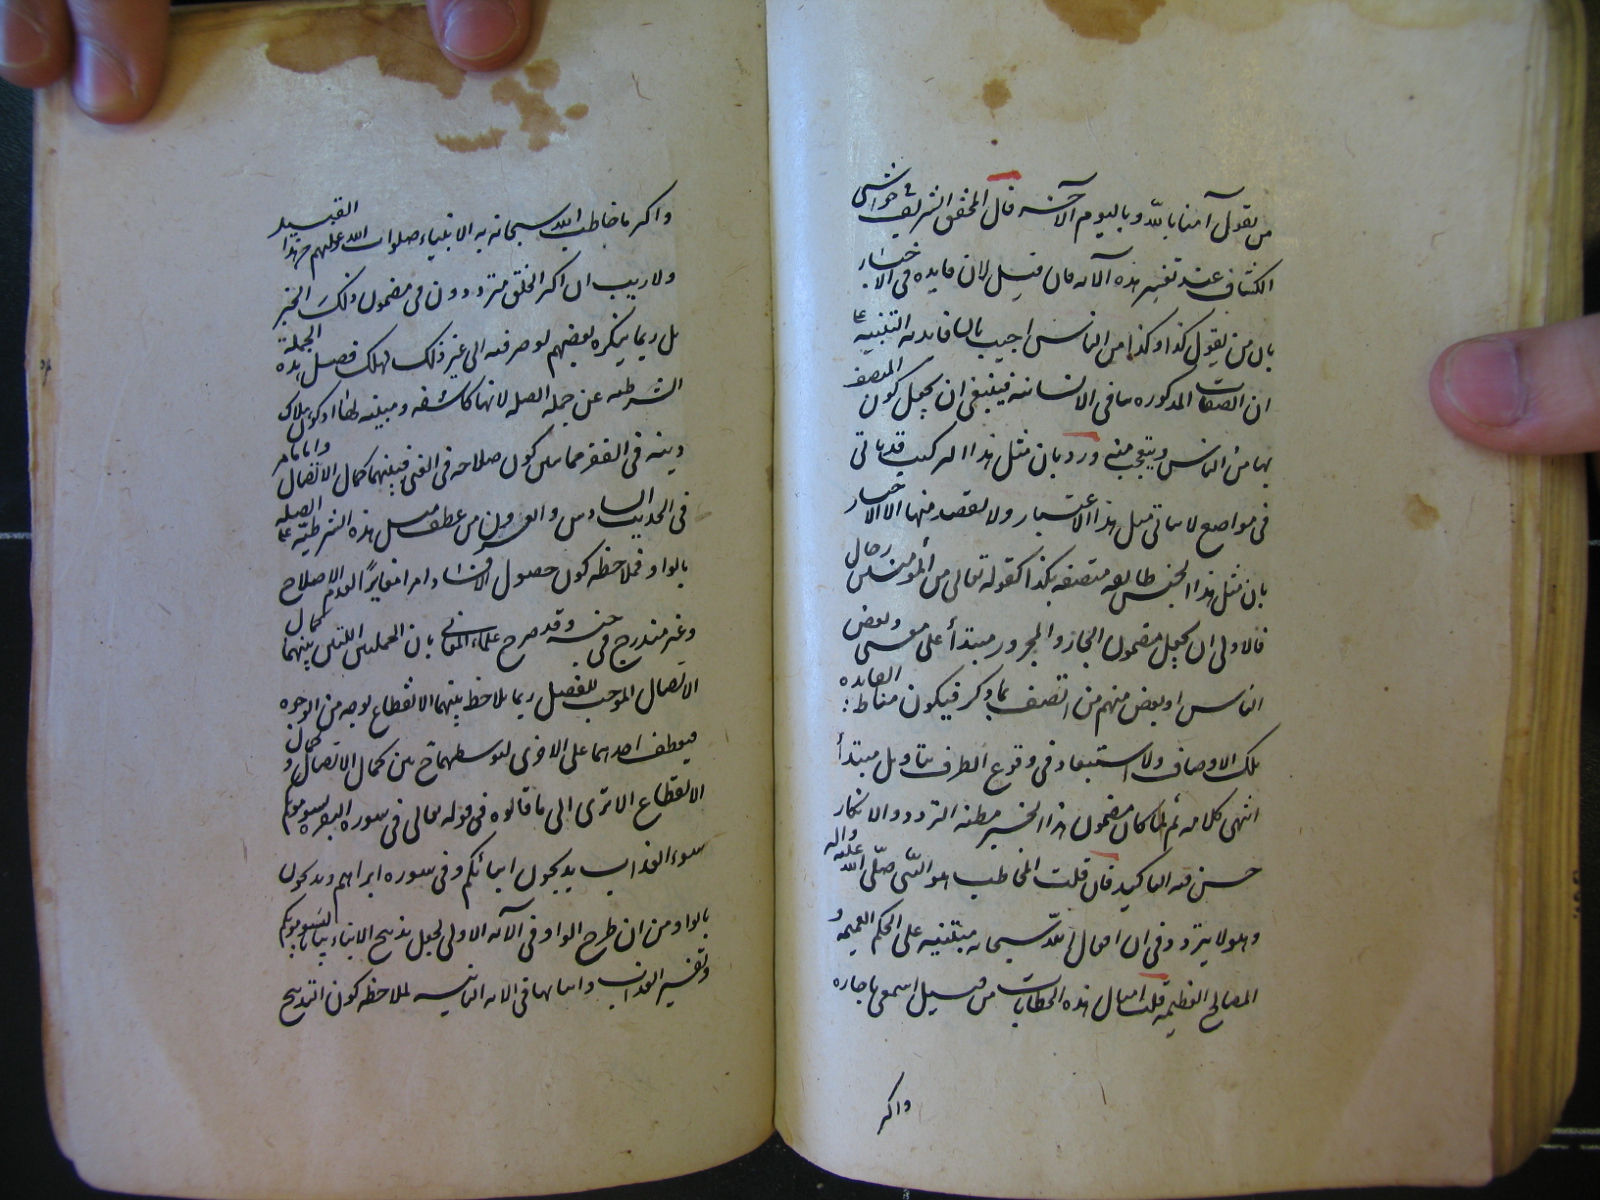 من يقول آمنا بالله وباليوم الآخر قال المحقق الشريف في حواشي
الكشاف عند تفسير هذه الآية فان قيل لا فايده في الاخبار
بان من يقول كذا وكذا من الناس اجيب بان فايدته التنبيه على
ان الصفات المذكوره تنافي الانسانيه فينبغي ان يجهل كون المتصف
بها من الناس ويتعجب منه ورد بان مثل هذا التركيب قد ياتي
في مواضع لا يتاتى مثل هذا الاعتبار ولا يقصد منها الا الاخبار
بان مثل هذا الجنس طايفه متصفه بكذا كقوله تعالى من المؤمنين رجال
فالاولى ان يجعل مضمون الجار والمجرور مبتدأ على معنى وبعض
الناس او بعض منهم من اتصف بما ذكر فيكون مناط الفايده
تلك الاوصاف ولا استبعاد في وقوع الظرف بتاويل مبتدأ
انتهى كلامه ثم لما كان مضمون هذا الخبر مظنه التردد والانكار
حسن فيه التاكيد فان قلت المخاطب هو النبي صلى الله عليه واله
وهو لا يتردد في ان افعال الله سبحانه مبتنيه على الحكم العميمه و
المصالح العظيمه قلت امثال هذه الخطابات من قبيل اسمعي يا جاره
واكثر
واكثر ما خاطب الله سبحانه به الانبياء صلوات الله عليهم من هذا القبيل
ولا ريب ان اكثر الخلق مترددون في مضمون ذلك الخبر
بل ربما ينكره بعضهم لو صرفته الى غير ذلك لهلك فصل هذه الجملة
الشرطيه عن جمله الصله لانها كاشفه ومبينه لها اذ كون هلاك
دينه في الفقر مما يبين كون صلاحه في الغنى فبينهما كمال الاتصال واما ما مر
في الحديث السادس والعشرون من عطف مثل هذه الشرطيّه على الصله
بالواو فملاحظه كون حصول الافساد امرا مغايرًا لعدم الاصلاح
وغير مندرج في جنبه وقد صرح علماء المعاني بان الجملتين اللتين بينهما كمال
الاتصال الموجب للفصل ربما يلاحظ بينهما الانقطاع بوجه من الوجوه
فيعطف احدهما على الاخرى لتوسطهما ح بين كمال الاتصال و كمال
الانقطاع الا ترى الى ما قالوه في قوله تعالى في سوره البقره يسومونكم
سوء العذاب يذبحون ابنائكم وفي سوره ابراهيم ويذبحون
بالواو من ان طرح الواو في الآيه الاولى لجعل تذبيح الابناء بيانا ليسومونكم
وتفسير العذاب واثباتها في الايه الثانيه لملاحظه كون التذبيح